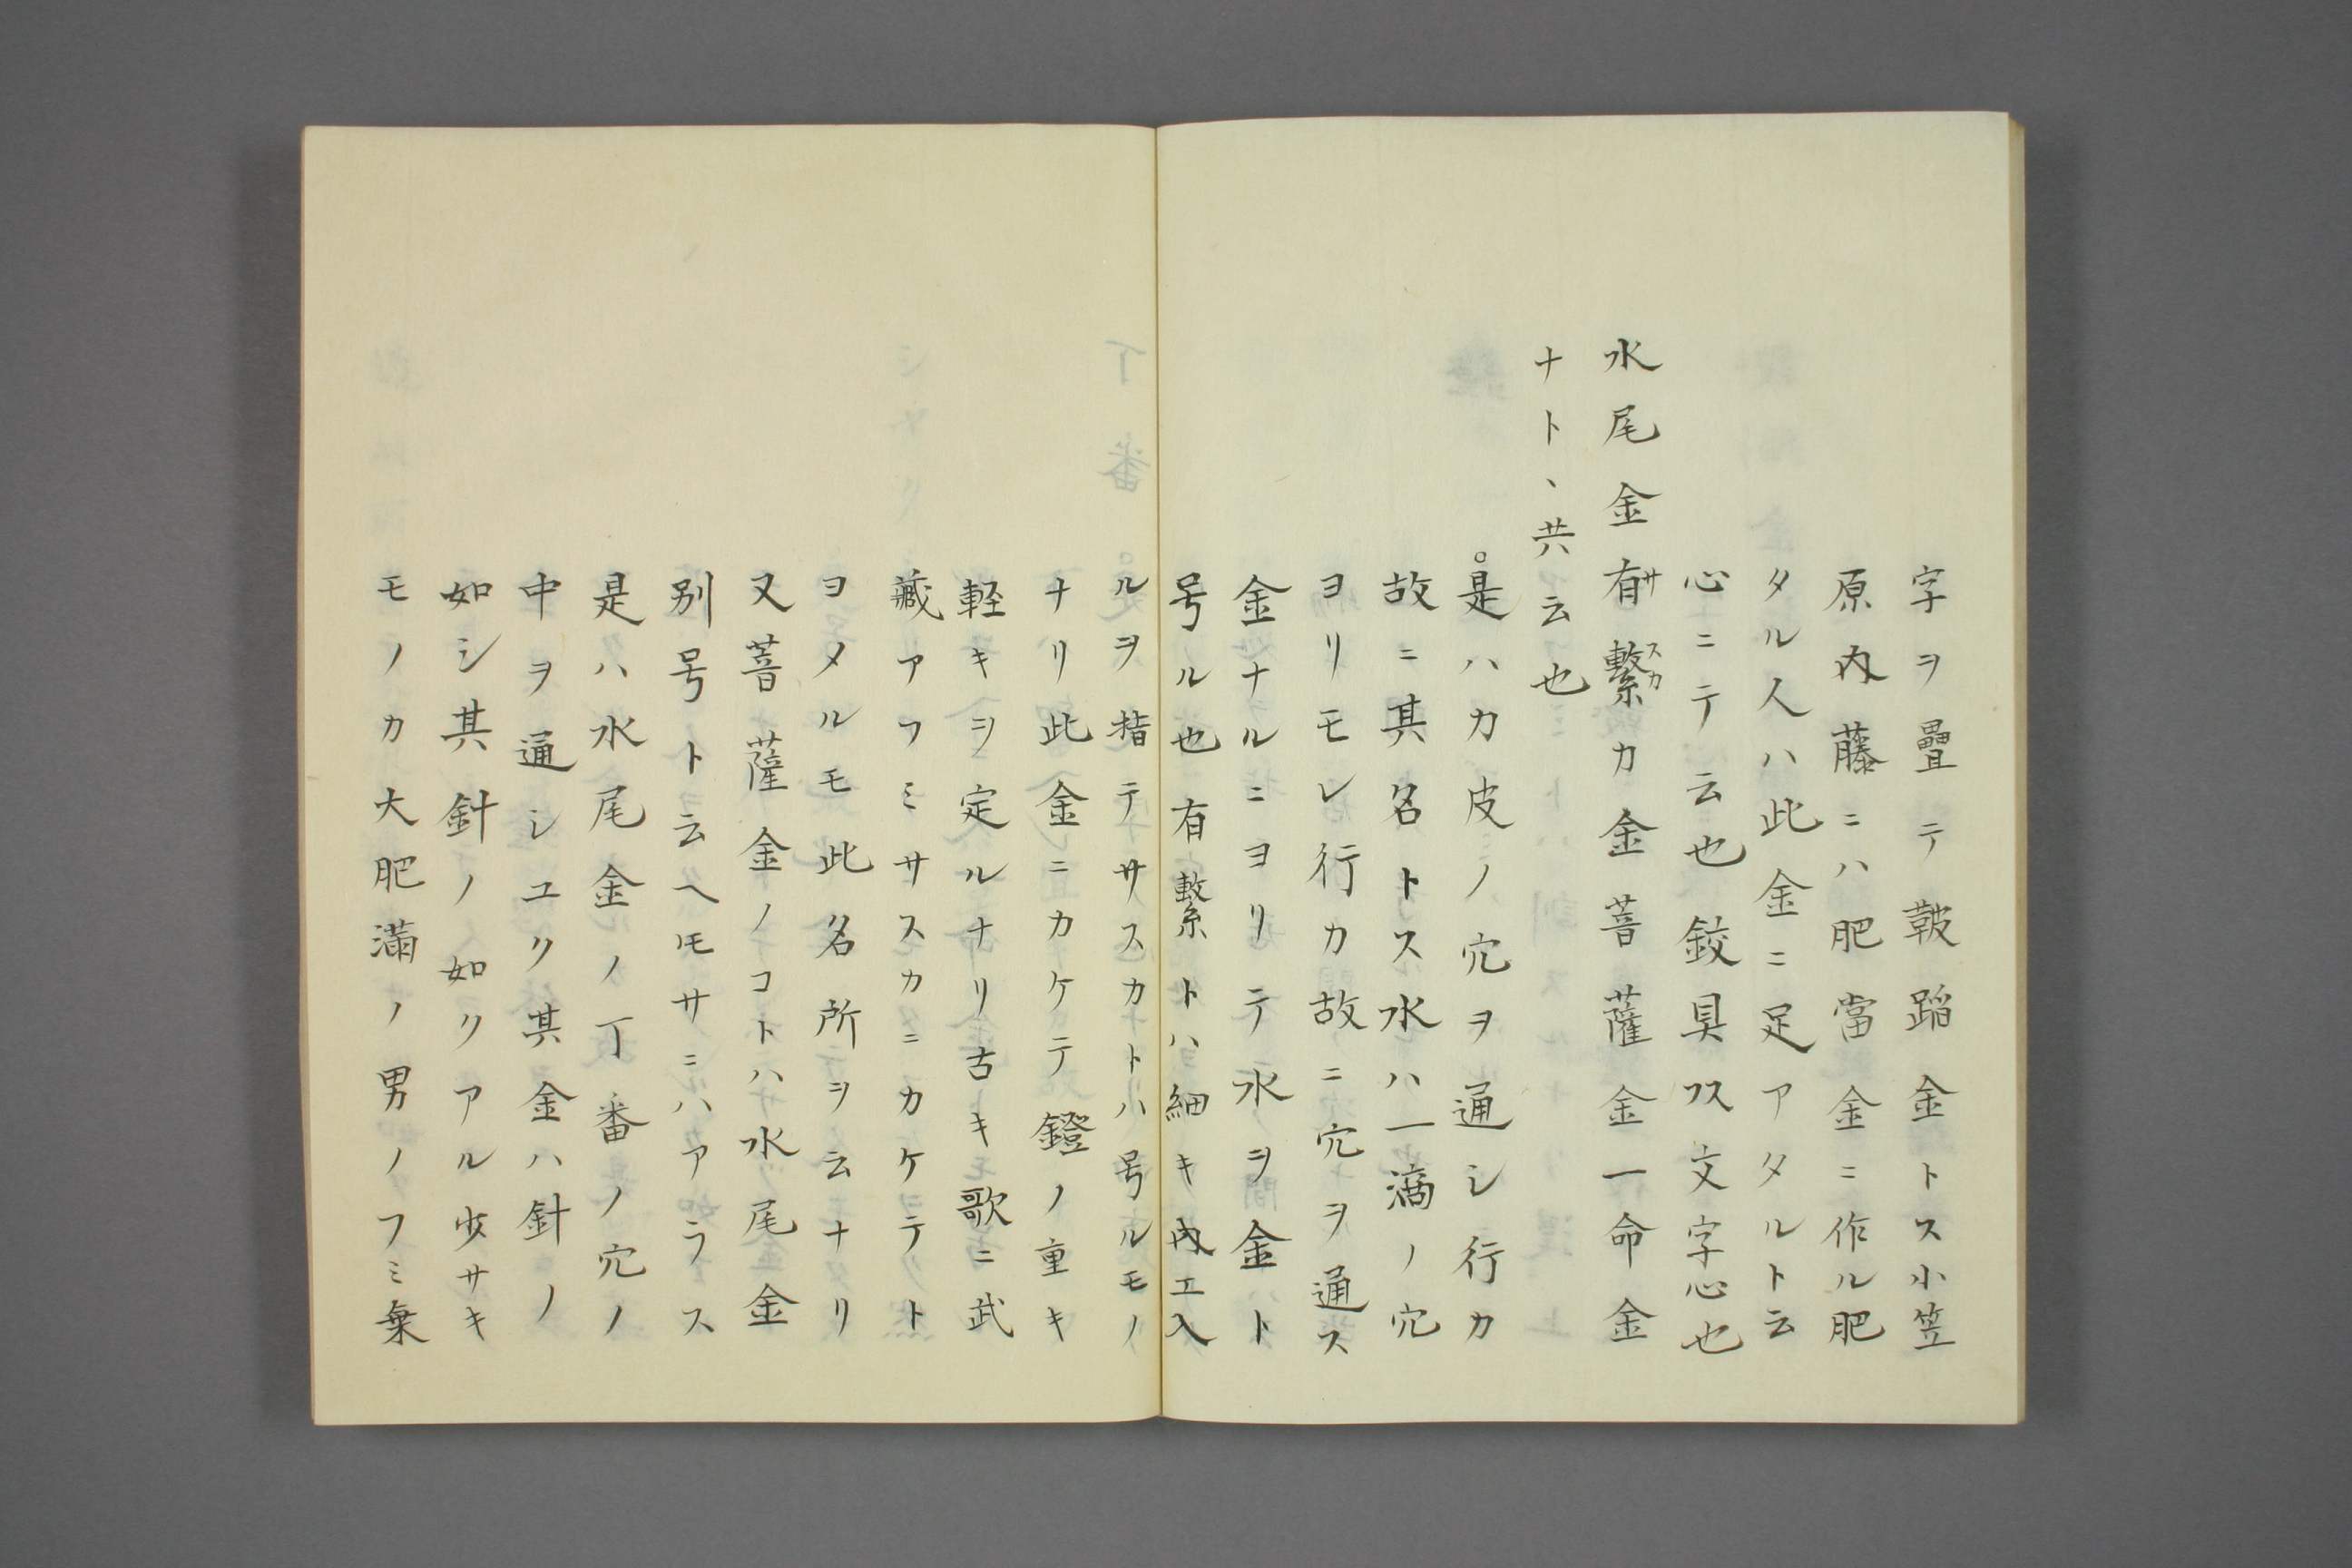 字ヲ疊テ鞁蹈金トス小笠
原内藤ニハ肥當金ニ作ル肥
タル人ハ此金ニ足アタルト云
心ニテ云也鉸具又文字心也
水尾金有繋カ金菩薩金一命金
サスカ
ナト、共云也
。是ハカ皮ノ穴ヲ通シ行カ
故ニ其名トス水ハ一滴ノ穴
ヨリモレ行カ故ニ穴ヲ通ス
金ナルニヨリテ水ヲ金ト
号ル也有繋トハ細キ内エ入
ルヲ指テサスカトハ号ルモノ
ナリ此金ニカケテ鐙ノ重キ
軽キヲ定ルナリ古キ歌ニ武
藏アフミサスカニカケテト
ヨメルモ此名所ヲ云ナリ
又菩薩金ノコトハ水尾金
別号ト云ヘ𪜈サニハアラス
是ハ水尾金ノ丁番ノ穴ノ
中ヲ通シユク其金ハ針ノ
如シ其針ノ如クアル少サキ
モノカ大肥滿ノ男ノフミ棄